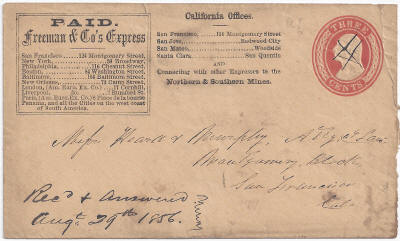 PAID.
Freeman & Co's Express
San Francisco 124 Montgomery Street,
New York, 59 Broadway,
Philadelphia, 116 Chestnut Street,
Boston, 84 Washington Street,
Baltimore, 164 Baltimore Street,
New Orleans, 72 Camp Street,
London, (Am. Eurs. Ex. Co.) 17 Cornhill,
Liverpool, do.
Paris, (Am. Eurs. Ex. Co.) 8 Place de la Bourse
Panama, and all the Cities on the west coast
of South America.
California Offices.
San Francisco, 124 Montgomery Street
San Jose, Redwood City
San Mateo, Woodside
Santa Clara, San Quentin
AND
Connecting with other Expresses to the
Northern & Southern Mines.
THREE
CENTS
Messrs Heard & Murphy, Att'ys at Law
Montgomery Block
San Francisco
Cal.
Rec'd & Answered
Aug. 29th 1856.